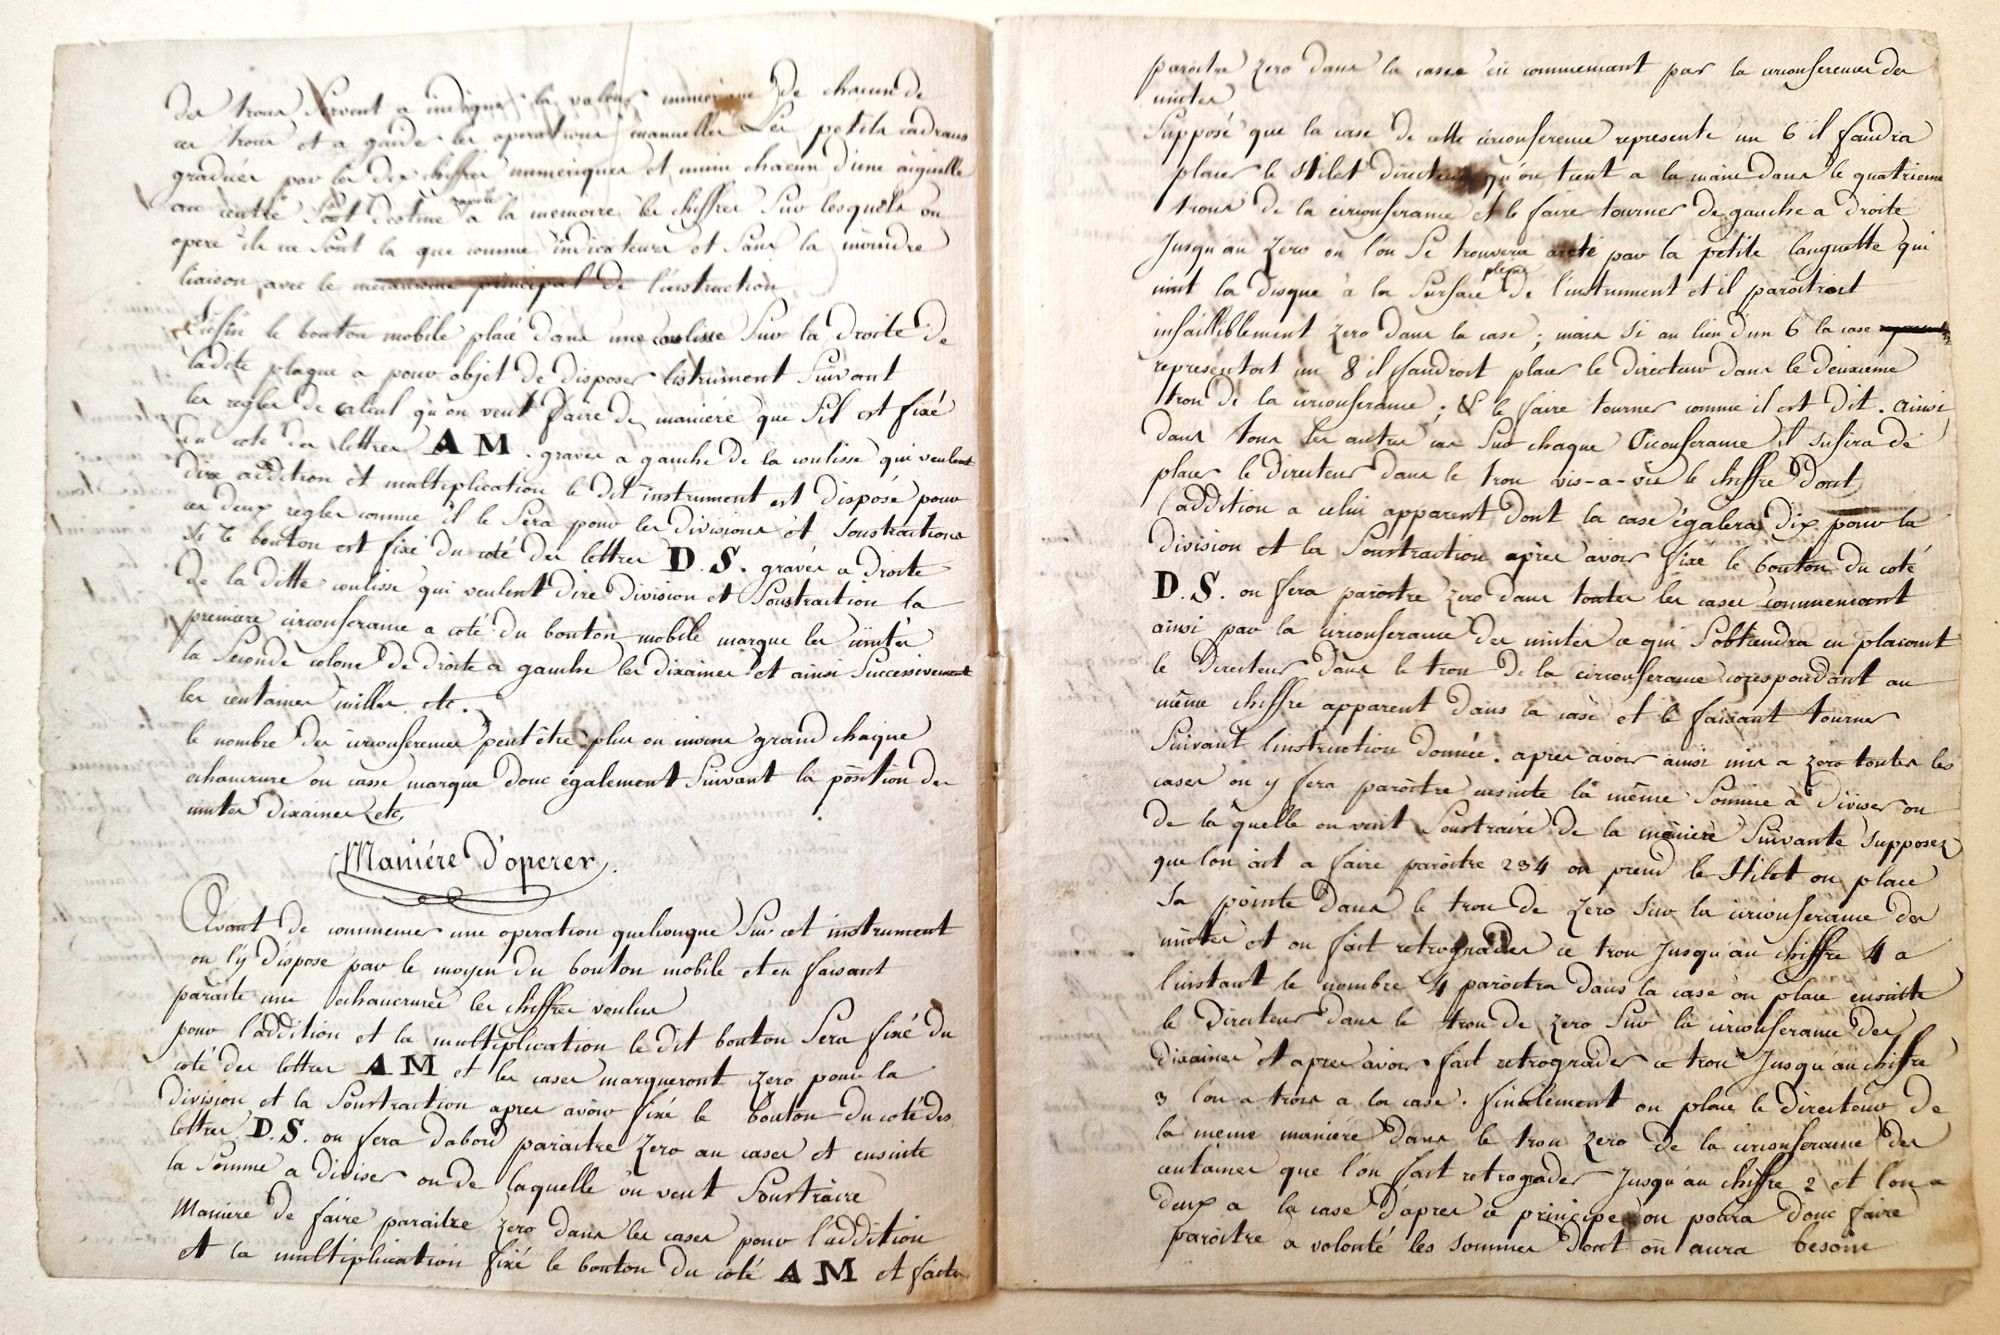 des trous servent a indiquer la valeur numerique de chacun de
ces trous et a guider les operations manuelles Les petits cadrans
gradués par les dix chiffres numeriques et munie chacun d'une aiguille
au centre sont destiné a rapeler a la memoire les chiffres sur lesquels on
opere ils ne sont la que comme indicateurs et sans la moindre
liaison avec le mécanisme principal de l'instruction
Enfin le bouton mobile placé dans une coulisse sur la droite de
ladite plaque a pour objet de disposer listrument suivant
les regles de calcul qu'on veut faire de maniére que s'il est fixé
du coté des lettres A M. gravés a gauche de la coulisse qui veulent
dire addition et multiplication le dit instrument est disposé pour
ces deux regles comme il le sera pour les divisions et soustractions
si le bouton est fixé du coté des lettres D. S. gravés a droite
de la ditte coulisse qui veulent dire Division et Soustraction la
premiere circonferance a coté du bouton mobile marque les unités
la seconde colone de droite a gauche les dixaines et ainsi successivement
les centaines milles etc.
le nombre des circonferences peut être plus ou moins grand chaque
echancrure ou casse marque donc également suivant la position des
unités dixaines etc
Maniére d'operer.
Avant de commencer une operation quelconque sur cet instrument
on l'y dispose par le moyen du bouton mobile et en faisant
paraite aux echancrures les chiffres voulus
pour l'addition et la multiplication le dit bouton sera fixé du
coté des lettres A M et les cases marqueront zero pour la
division et la soustraction apres avoir fixé le bouton du coté des
lettres D. S. on fera dabord paraitre zero au cases et ensuite
la somme a diviser ou de laquelle on veut soustraire
Maniere de faire paraitre zero dans les cases pour l'addition
et la multiplication fixé le bouton du coté A M et faite
paroitre zero dans la cases en commencant par la circonference des
unites
Supposé que la case de cette circonference represente un 6 il faudra
placer le stilet directeur qu'on tient a la main dans le quatrieme
trous de la circonferance et le faire tourner de gauche a droite
Jusqu'au zero ou l'on se trouvera areté par la petite languette qui
unit la disque à la surface plane de l'instrument et il paroitroit
infailliblement zero dans la case; mais si au lieu d'un 6 la case
representoit un 8 il faudroit placer le directeur dans le deuxieme
trou de la circonferance; & le faire tourner comme il est dit. ainsi
dans tous les autres cas sur chaque Circonferance il sufira de
placer le directeur dans le trou vis-a-vis le chiffre dont
l'addition a celui apparent dont la case égalera dix pour la
division et la soustraction aprés avoir fixé le bouton du coté
D. S. on fera paroitre zero dans toutes les cases commencant
ainsi par la circonferance des unites ce qui s'obtiendra en placant
le directeur dans le trou de la circonferance corespondant au
même chiffre apparent dans la case et le faisant tourner
suivant linstruction donnée. apres avoir ainsi mis a zero toutes les
cases on y fera paroitre ensuite la même somme à diviser ou
de la quelle on veut soustraire de la maniére suivante supposez
que l'on ait a faire paroitre 234 on prend le stilet on place
sa pointe dans le trou de zero sur la circonferance des
unites et on fait retrograder ce trou Jusqu'au chiffre 4 a
l'instant le nombre 4 paroitra dans la case on place ensuitte
le directeur dans le trou de zero sur la circonferance des
dixaines et apres avoir fait retrograder ce trou Jusqu'au chiffre
3 l'on a trois a la case. finalement on place le directeur de
la même maniére dans le trou zero de la circonferance des
centaines que l'on fait retrograder Jusqu'au chiffre 2 et l'on a
deux a la case d'apres ce principe on poura donc faire
paroitre a volonté les sommes dont on aura besoin